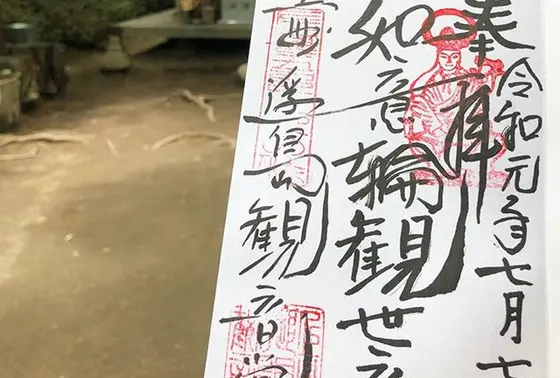 奉拝
令和元年七月十
如意輪観世音
浮島観音堂